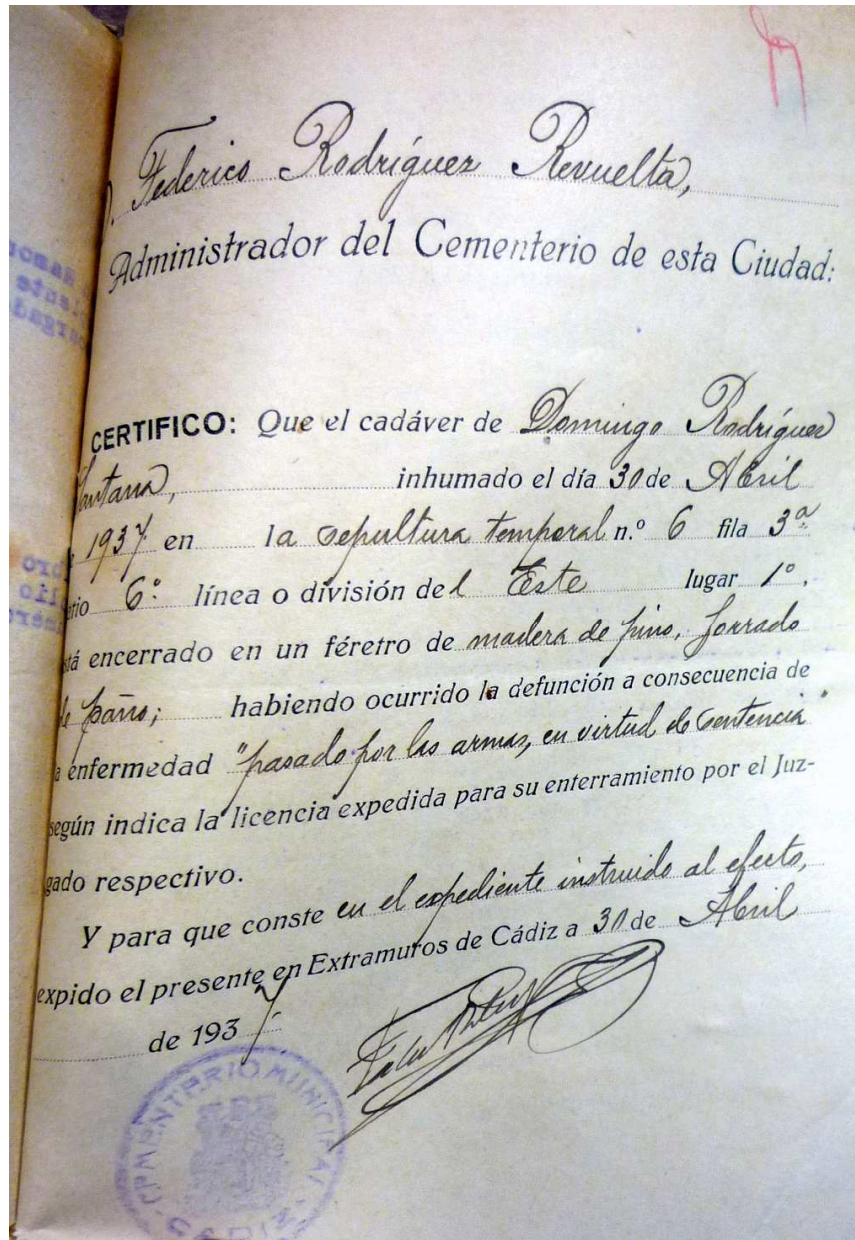 D. Federico Rodríguez Revuelta,
Administrador del Cementerio de esta Ciudad:
CERTIFICO: Que el cadáver de Domingo Rodríguez
Santana, inhumado el día 30 de Abril
e 1937 en la sepultura temporal n.º 6 fila 3ª
atio 6º línea o división del Este lugar 1º,
tá encerrado en un féretro de madera de pino, forrado
de paño; habiendo ocurrido la defunción a consecuencia de
a enfermedad "pasado por las armas, en virtud de sentencia"
según indica la licencia expedida para su enterramiento por el Juz-
gado respectivo.
Y para que conste en el expediente instruido al efecto,
expido el presente en Extramuros de Cádiz a 30 de Abril
de 1937
CEMENTERIO MUNICIPAL
CADIZ